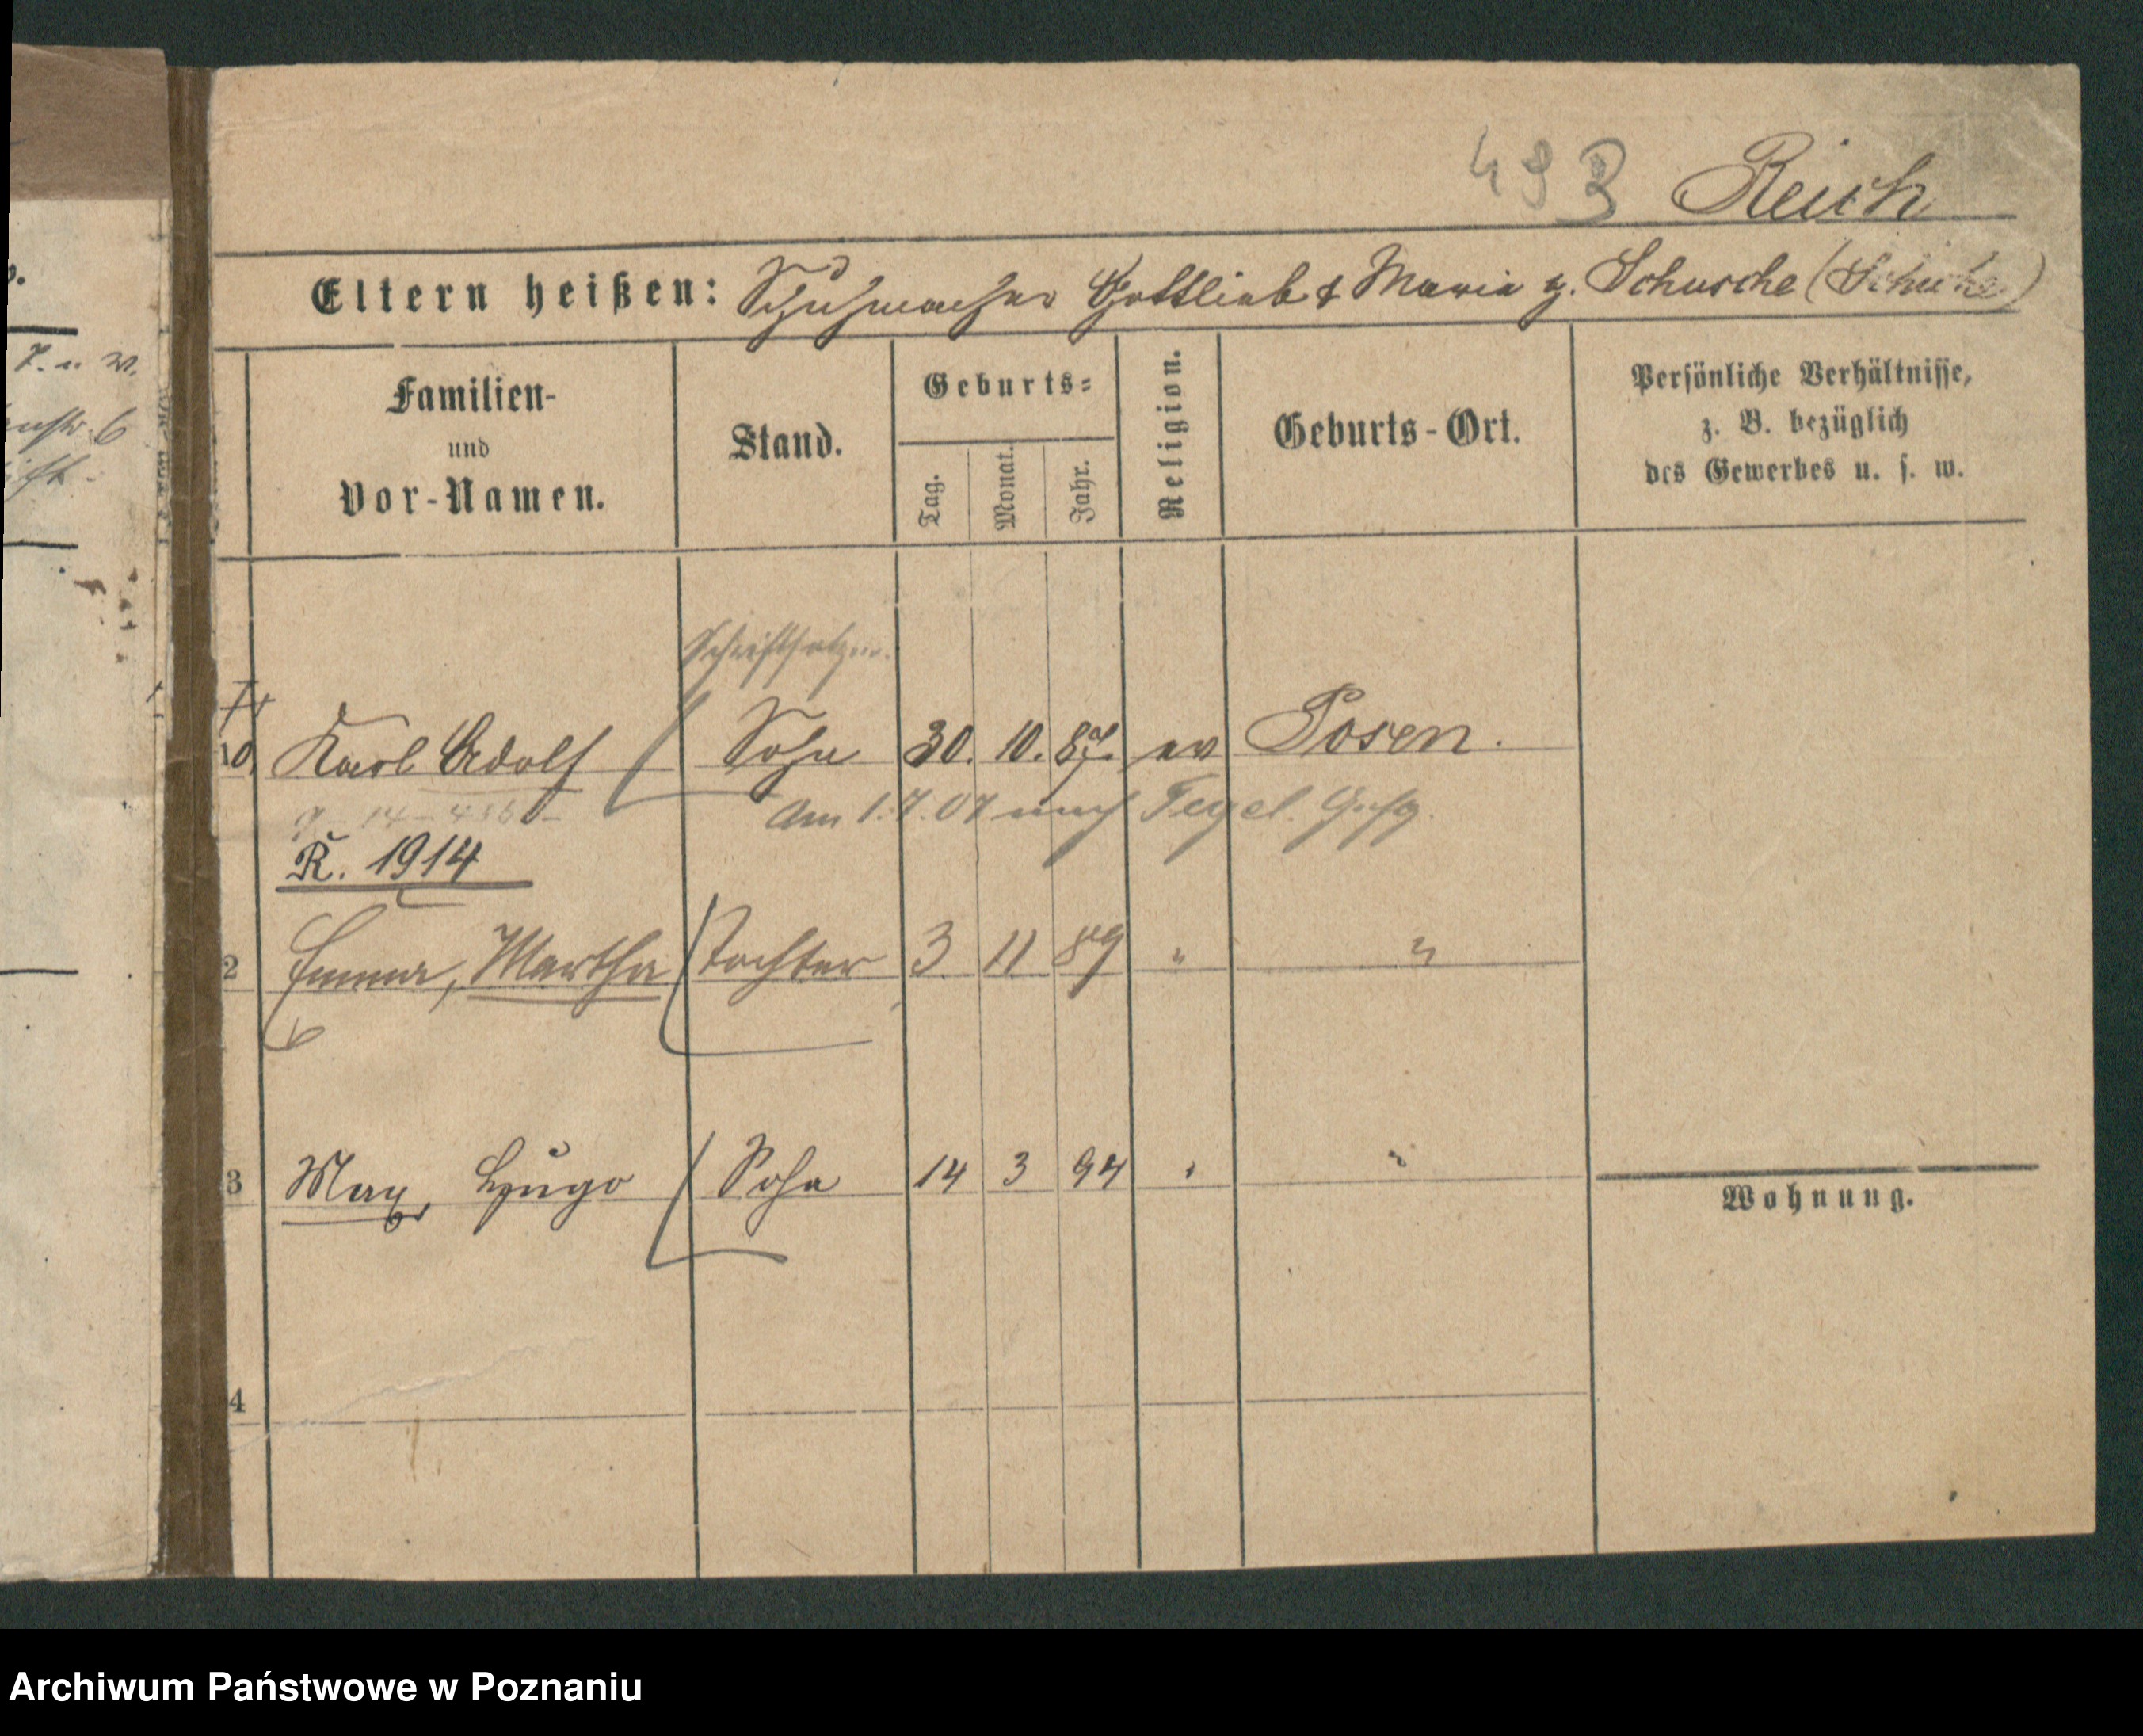 493 Reich
Eltern heißen: Schuhmacher Gottlieb & Maria g. Schusche (Schuche)
7. u W.
Familien-
und
Vor-Namen.
Stand.
Geburts-
Tag.
Monat.
Jahr.
Religion.
Geburts-Ort.
Persönliche Verhältnisse,
z. B. bezüglich
des Gewerbes u. s. w.
Schriftsetzer.
10, Karl Adolf Sohn 30. 10. 87. ev Posen.
Am 1.7.07 nach Tegel.
R. 1914
2 Emma, Martha Tochter 3 11 89 " "
3 Max, Hugo Sohn 14 3 94 " "
Wohnung.
4
Archiwum Państwowe w Poznaniu